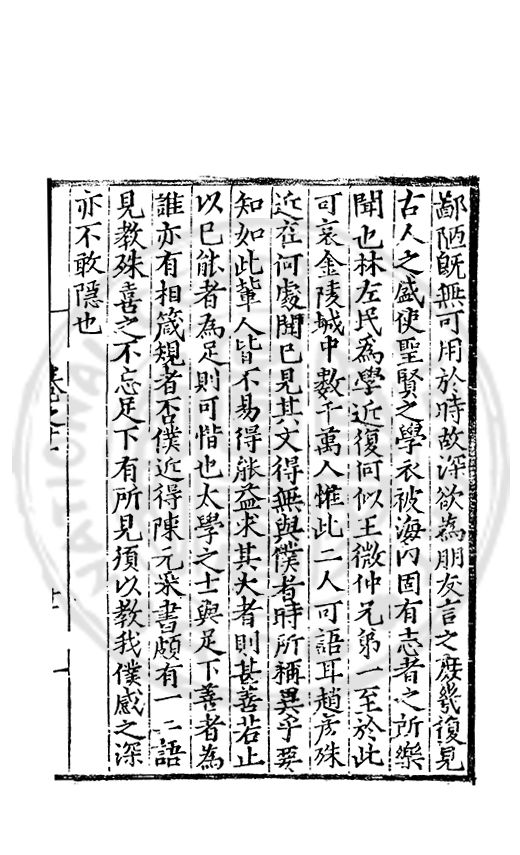 鄙陋旣無可用於時故深欲為朋友言之庶㡬復見
古人之盛使聖賢之學衣被海内固有志者之所樂
聞也林左民為學近復何似王微仲兄弟一至於此
可哀金陵城中數千萬人惟此二人可語耳趙彦殊
近在何處聞已見其文得無與僕昔時所稱異乎要
知如此軰人皆不易得能益求其大者則甚善若止
以已能者為足則可惜也太學之士與足下善者為
誰亦有相箴規者否僕近得陳元采書頗有一二語
見教殊喜之不忘足下有所見須以教我僕感之深
亦不敢隱也
卷之十
NATIONAL